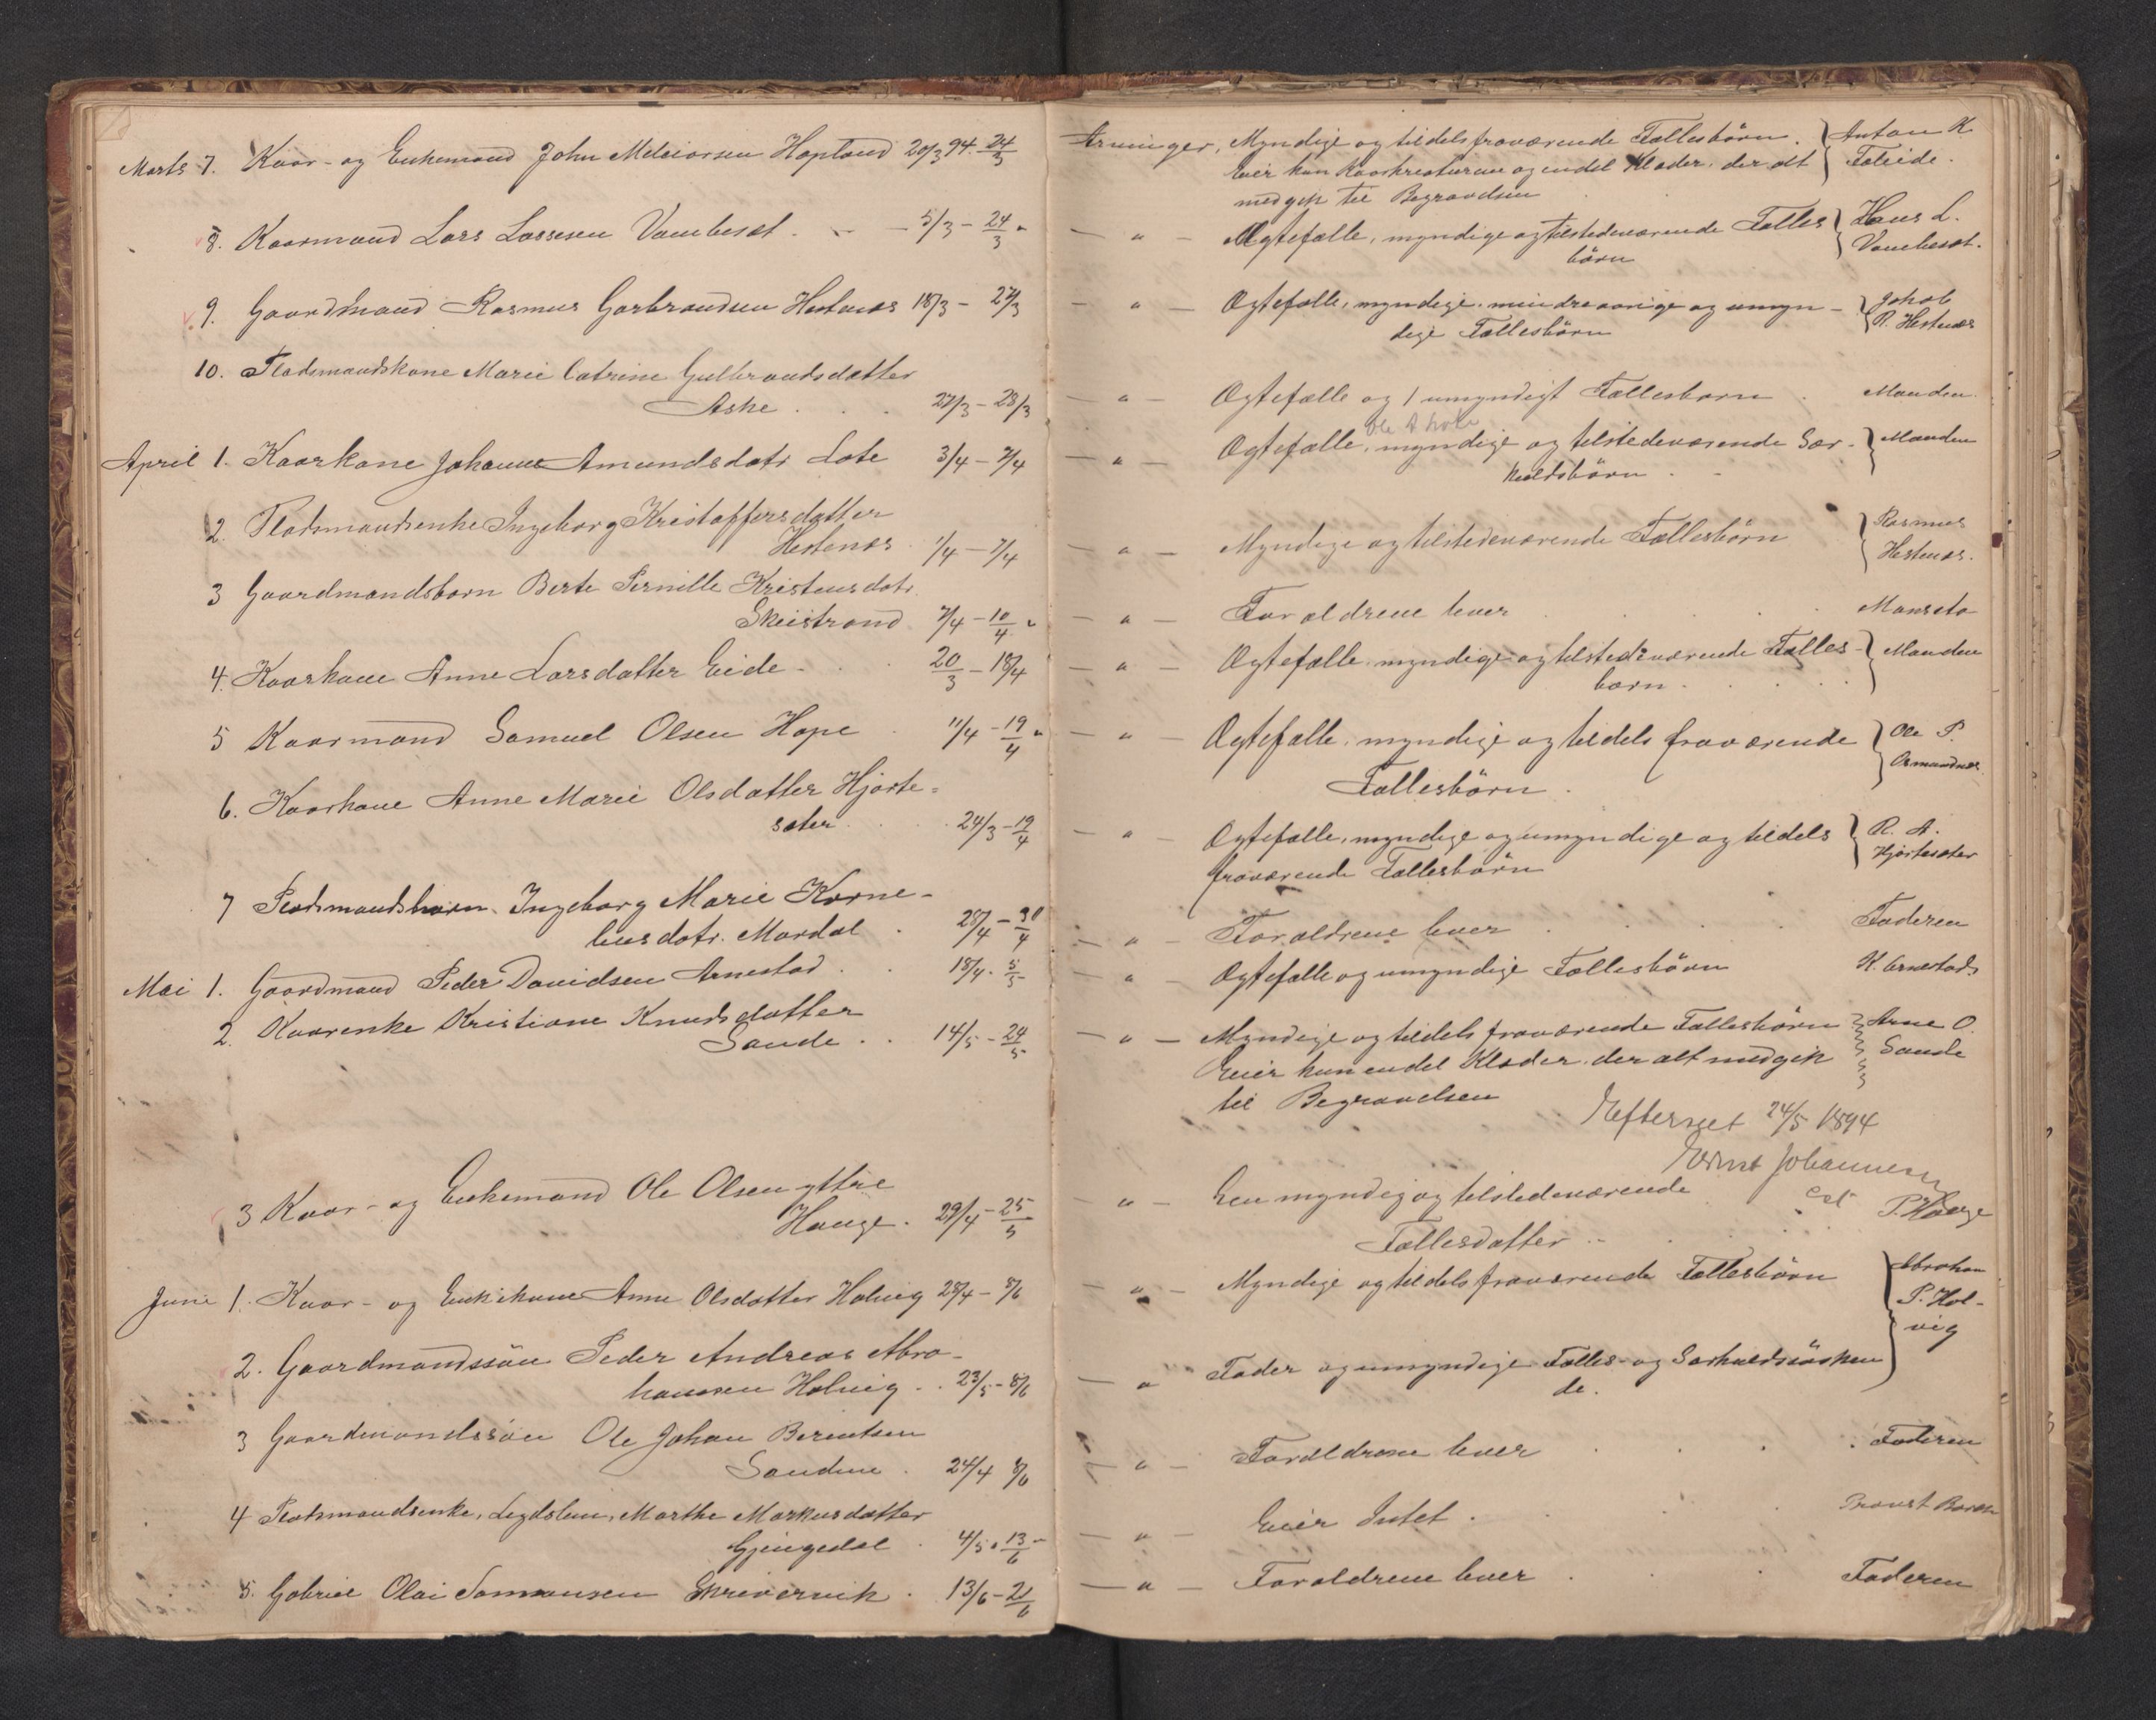 Marts 7. Kaar- og Enkemand John Melciorsen Hopland 20/3 94. 24/3
8. Kaarmand Lars Larssen Vambesæt. 5/3 - 24/3 "
9. Gaardmand Rasmus Garbrandsen Hestenæs 18/3 - 27/3
10. Pladsmandskone Marie Catrine Gulbrandsdatter
Aske . . . 27/3 - 28/3
April 1. Kaarkone Johanne Amundsdatr Lote 3/4 - 7/4
2. Pladsmandsenke Ingeborg Kristoffersdatter
Hestenæs 1/4 - 7/4
3 Gaardmandsbarn Berte Pernille Kristensdatr.
Skeistrand 7/4 - 10/4 "
4. Kaarkone Anne Larsdatter Eide . . 20/3 - 18/4
5 Kaarmand Samuel Olsen Hope . 11/4 - 19/4 "
6. Kaarkone Anne Marie Olsdatter Hjorte=
sæter . . . 24/3 - 19/4
7 Pladsmandsbarn Ingeborg Marie Korne-
liusdatr. Mardal . 28/4 - 30/4
Mai 1. Gaardmand Peder Davidsen Arnestad . . 18/4 . 5/5
2. Kaarenke Kristiane Knudsdatter
Sande . . 14/5 - 24/5
3 Kaar- og Enkemand Ole Olsen yttre
Hauge . 29/4 - 25/5
Juni 1. Kaar- og Enkekone Anne Olsdatter Holvig 28/4 - 8/6
2. Gaardmandssön Peder Andreas Abra-
hamsen Holvig . . 23/5 - 8/6
3 Gaardmandssön Ole Johan Berentsen
Sandene . 24/4 8/6
4 Pladsmandsenke, Legdslem, Marthe Markusdatter
Gjengedal . 4/5 . 13/6
5. Gabriel Olai Samsonsen Skrivervik . 13/6 - 21/6
Arvinger, Myndige og tildels fraværende Fællesbörn. } Anton K.
Eier kun Kaarkreaturene og endel Klæder, der alt } Faleide.
medgik til Begravelsen
— " — Ægtefælle, myndige og tilstedeværende Fælles } Hans L.
börn Vambesæt.
— " — Ægtefælle, myndige, mindreaarige og umyn- } Jakob
dige Fællesbörn R. Hestenæs
— " — Ægtefælle og 1 umyndigt Fællesbarn . Manden.
— " — Ægtefælle, myndige og tilstedeværende Sær- } Manden
kuldsbörn .
— " — Myndige og tilstedeværende Fællesbörn } Rasmus
Hestenæs.
— " — Forældrene lever . . .
— " — Ægtefælle, myndige og tilstedeværende Fælles- } Manden
börn . . . .
— " — Ægtefælle, myndige og tildels fraværende } Ole P.
Fællesbörn .
— " — Ægtefælle, myndige og umyndige og tildels } R. A.
fraværende Fællesbörn Hjortesæter
— " — Forældrene lever . . . . Faderen
— " — Ægtefælle og umyndige Fællesbörn K. Arnestad
— " — Myndige og tildels fraværende Fællesbörn } Arne O.
Eier kun endel Klæder, der alt medgik Sande
til Begravelsen
Efterseet 24/5 1894
— " — Een myndig og tilstedeværende P. Hauge
Fællesdatter . .
— " — Myndige og tildels fraværende Fællesbörn } Abraham
P. Hol-
vig
— " Fader og umyndige Fælles- og Særkuldssösken
de.
— " — Forældrene lever . . . Faderen
— " — Eier Intet . . .
— " — Forældrene lever . . . Faderen